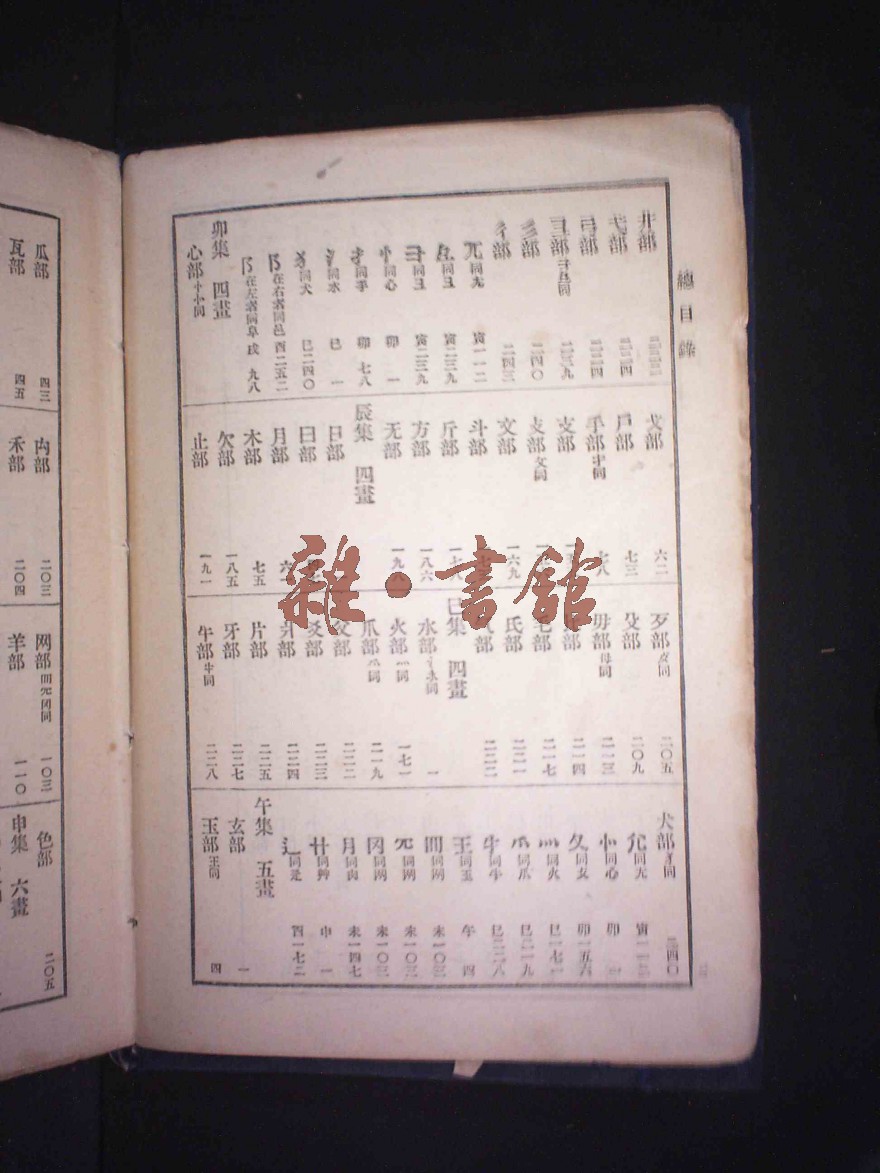 總目錄
廾部 二二三
弋部 二二四
弓部 二二四
彐部 彑同 二三九
彡部 二四〇
彳部 二四三
兀同尢 寅一一二
彑同彐 寅二三九
彐 寅二三九
忄同心 卯一
扌同手 卯七八
氵同水 巳一
犭同犬 巳二四〇
阝在右者同邑 酉二五二
阝在左者同阜 戌九八
卯集 四畫
心部 忄㣺同
戈部 六二
戶部 七三
手部 扌同 七八
支部
攴部 攵同
文部 一六九
斗部
斤部 一七八
方部 一八六
无部 一九八
辰集 四畫
日部
曰部
月部
木部 七五
欠部 一八五
止部 一九一
歹部 歺同 二〇五
殳部 二〇九
毋部 母同 二一三
二一四
毛部 二一七
氏部 二二一
二二二
巳集 四畫
水部 氵氺同 一
火部 灬同 一七一
爪部 爫同 二一九
父部 二二二
爻部 二二三
爿部 二二四
片部 二二五
牙部 二二七
牛部 牜同 二二八
犬部 犭同 二四〇
尣同尢 寅一一二
忄同心 卯一
攵同攴 卯一五六
灬同火 巳一七一
爫同爪 巳二一九
牜同牛 巳二二八
王同玉 午四
罒同网 未一〇三
同网 未一〇三
冈同网 未一〇三
月同肉 未一四七
艹同艸 申一
辶同辵 酉一七二
午集 五畫
玄部 一
玉部 王同 四
瓜部 四三
瓦部 四五
禸部 二〇三
禾部 二〇四
网部 一〇三
羊部 一一〇
色部 二〇五
申集 六畫
雜·書館